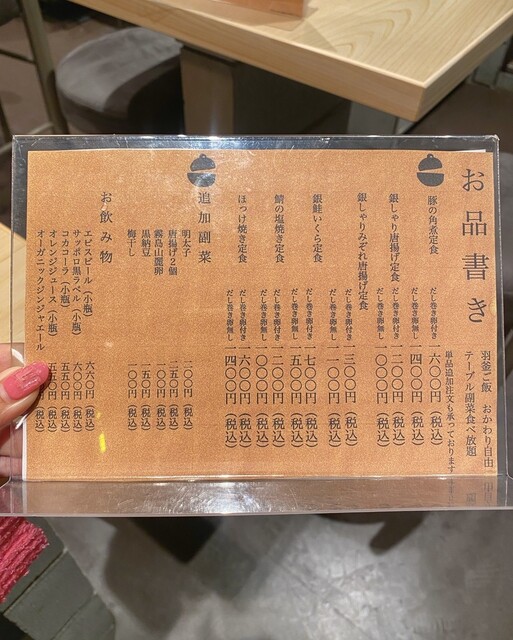 お品書き
羽釜ご飯 おかわり自由
テーブル副菜食べ放題
単品追加注文も承っております
豚の角煮定食
だし巻き卵付き 六〇〇円(税込)
だし巻き卵無し 四〇〇円(税込)
銀しゃり唐揚げ定食
だし巻き卵付き 二〇〇円(税込)
だし巻き卵無し 〇〇〇円(税込)
銀しゃりみぞれ唐揚げ定食
だし巻き卵付き 三〇〇円(税込)
だし巻き卵無し 一〇〇円(税込)
銀鮭いくら定食
だし巻き卵付き 七〇〇円(税込)
だし巻き卵無し 五〇〇円(税込)
鯖の塩焼き定食
だし巻き卵付き 二〇〇円(税込)
だし巻き卵無し 〇〇〇円(税込)
ほっけ焼き定食
だし巻き卵付き 六〇〇円(税込)
だし巻き卵無し 四〇〇円(税込)
追加副菜
明太子 二〇〇円(税込)
唐揚げ2個 二五〇円(税込)
霧島山麓卵 一〇〇円(税込)
黒納豆 一五〇円(税込)
梅干し 一〇〇円(税込)
お飲み物
エビスビール(小瓶) 六六〇円(税込)
サッポロ黒ラベル(小瓶) 六〇〇円(税込)
コカコーラ(小瓶) 五五〇円(税込)
オレンジジュース(小瓶) 五〇円(税込)
オーガニックジンジャエール 円(税込)